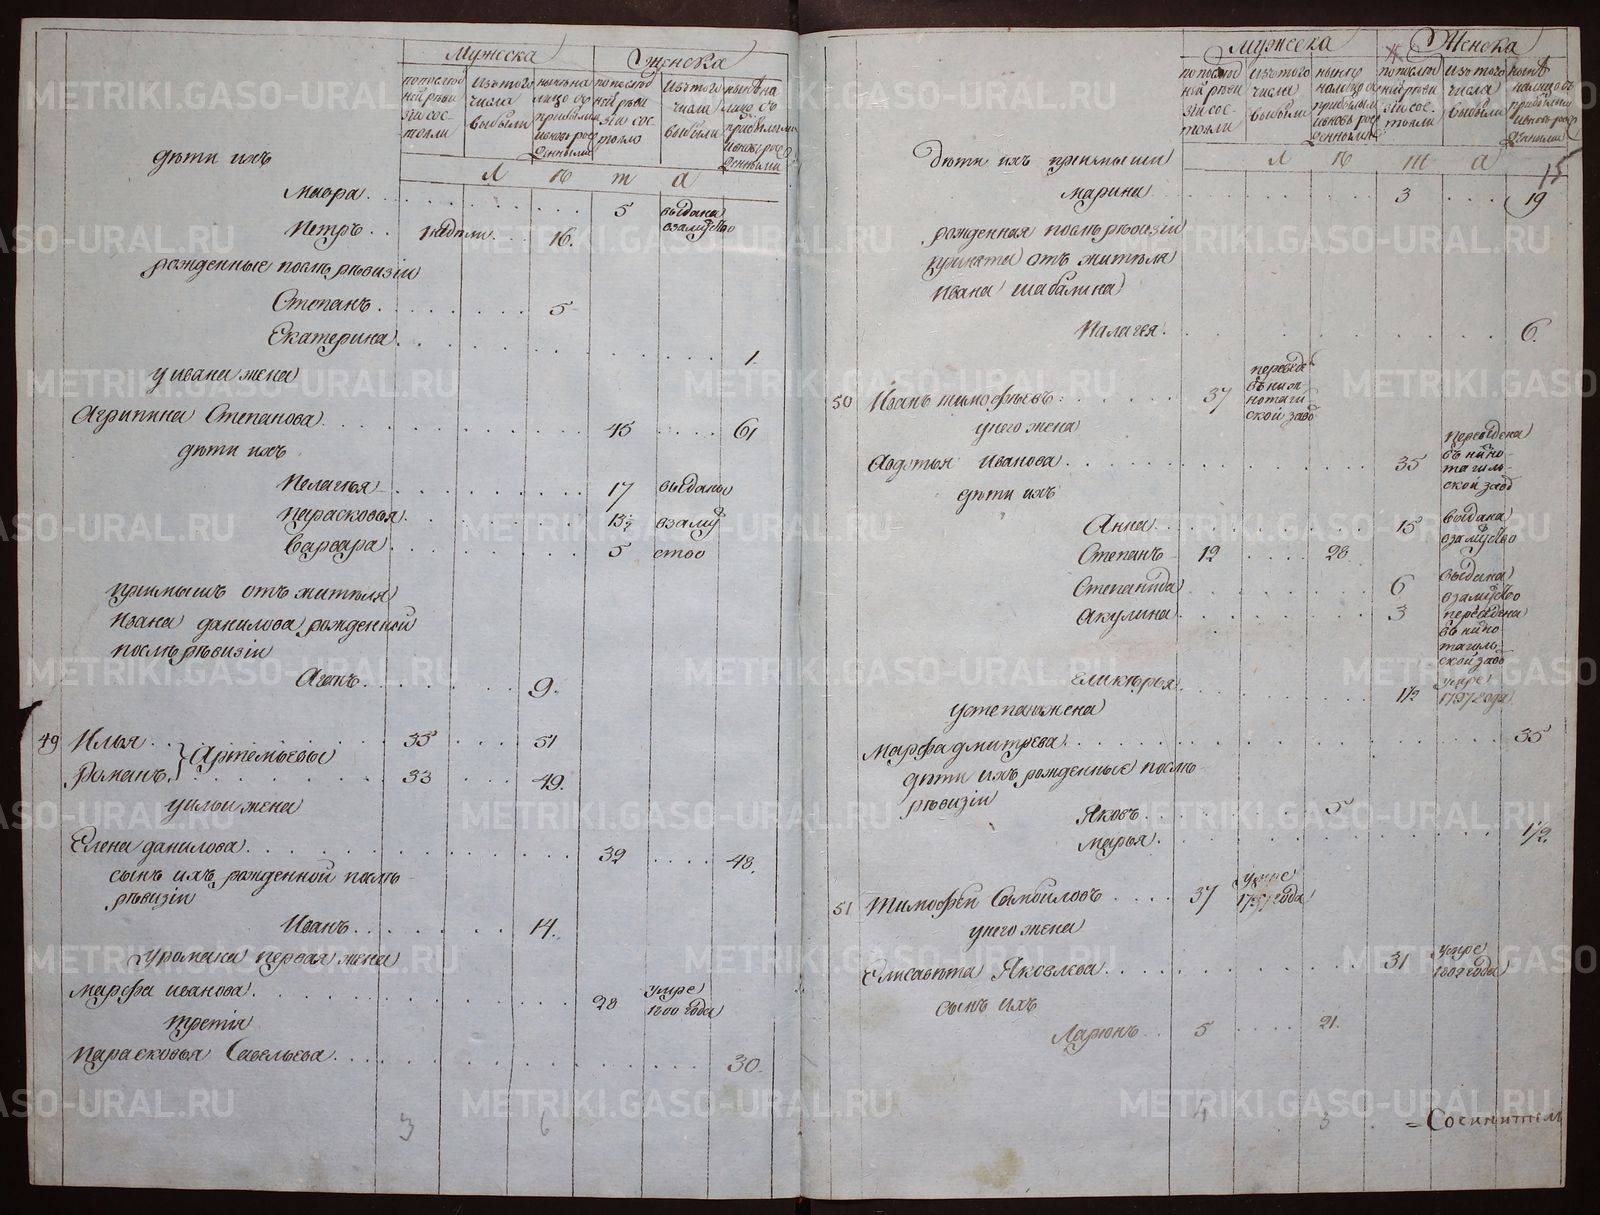 Мужеска Женска
по послѣд ней реви зіи сос- тояли
изъ того числа выбыли
нынѣ на лицо съ прибылыми и вновь рож денными
по послѣд ней реви зіи сос тояло
изъ того числа выбыли
нынѣ на лицо съ прибылыми и вновь рож денными
л ѣ т а
дѣти ихъ
Мавра 5 выдана взамужство
Петръ 1 недѣли 16.
рожденные послѣ ревизіи
Степанъ 5
Екатерина 1.
у ивана жена
Агрипина Степанова 45 61
дѣти ихъ
Пелагѣя 17 выданы
Парасковья 13½ взаму
Варвара 5 ство
примышъ отъ жителя
Ивана данилова рожденной
послѣ ревизіи
Агапъ 9.
49 Илья 35 51
Романъ } Артемьевы 33 49.
у ильи жена
Елена данилова 32 48.
сынъ ихъ рожденной послѣ
ревизіи
Иванъ 14.
у романа первая жена
Марфа иванова 28 умре 1800 года
третія
Парасковья Савельева 30.
3 6
Мужеска Женска
по послѣд ней реви зіи сос- тояли
изъ того числа выбыли
нынѣ на лицо съ прибылыми и вновь рож денными
по послѣд ней реви зіи сос- тояли
изъ того числа выбыли
нынѣ на лицо съ прибылыми и вновь рож денными
л ѣ т а
15
дѣти ихъ примыши
Марина 3 19
рожденная послѣ ревизіи
принята отъ жителя
Ивана шабалина
Палагея 6.
50 Иванъ тимофѣевъ 37 переведе въ ниж нотаги ской завд
у него жена
Авдотья Иванова 35 переведена въ нижно тагиль- ской завд
дѣти ихъ
Анна 15 выдана взамужство
Степанъ 12 28.
Степанида 6 выдана взамужство
Акулина 3 переведена въ нижно тагиль- ской завд
Еликтрея 1½ умре 1797 года
у степана жена
Марфа дмитрева 35
дѣти ихъ рожденные послѣ
ревизіи
Яковъ 5
Марья 1½.
51 Тимофей Самойловъ 37 умре 1797 года
у него жена
Елисавѣта Яковлева 31 умре 1802 года
сынъ ихъ
Ларіонъ 5 21.
4 3
Соснитель
METRIKI.GASO-URAL.RU